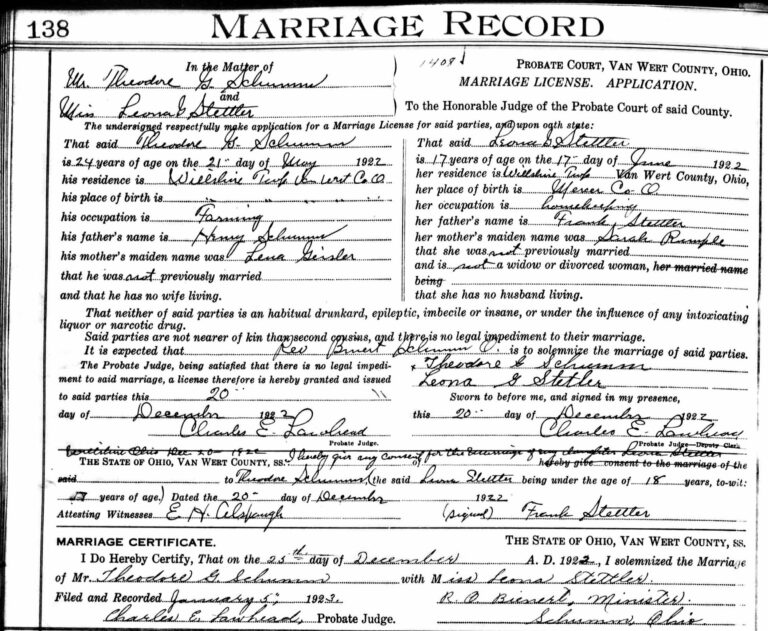 138 MARRIAGE RECORD
In the Matter of
Mr. Theodore G. Schumm
and
Miss Leona G Stettler
14081
PROBATE COURT, VAN WERT COUNTY, OHIO.
MARRIAGE LICENSE. APPLICATION.
To the Honorable Judge of the Probate Court of said County.
The undersigned respectfully make application for a Marriage License for said parties, and upon oath state:
That said Theodore G. Schumm
is 24 years of age on the 21 day of May 1922
his residence is Willshire Twp Van Wert Co O
his place of birth is " " "
his occupation is Farming
his father's name is Henry Schumm
his mother's maiden name was Lena Geisler
that he was not previously married
and that he has no wife living.
That said Leona G Stettler
is 17 years of age on the 17 day of June 1922
her residence is Willshire Twp Van Wert County, Ohio,
her place of birth is Mercer Co O
her occupation is housekeeping
her father's name is Frank Stettler
her mother's maiden name was Sarah Rumple
that she was not previously married
and is not a widow or divorced woman, her married name
being
that she has no husband living.
That neither of said parties is an habitual drunkard, epileptic, imbecile or insane, or under the influence of any intoxicating
liquor or narcotic drug.
Said parties are not nearer of kin than second cousins, and there is no legal impediment to their marriage.
It is expected that Rev Schumm O. is to solemnize the marriage of said parties.
The Probate Judge, being satisfied that there is no legal impedi-
ment to said marriage, a license therefore is hereby granted and issued
to said parties this 20 "
day of December 1922
Charles E. Lawhead
Probate Judge.
Theodore G Schumm
Leona G Stettler
Sworn to before me, and signed in my presence,
this 20 day of December 1922
Charles E. Lawhead
Probate Judge Deputy Clerk
Ohio Dec 20 1922 I hereby give my consent for the marriage of my daughter Leona Stettler
THE STATE OF OHIO, VAN WERT COUNTY, SS. hereby give consent to the marriage of the
said to Theodore Schumm (the said Leona Stettler being under the age of 18 years, to-wit:
17 years of age.) Dated the 20 day of December 1922
Attesting Witnesses E. H. Alspaugh (Signed) Frank Stettler
MARRIAGE CERTIFICATE. THE STATE OF OHIO, VAN WERT COUNTY, SS.
I Do Hereby Certify, That on the 25th day of December A. D. 1922, I solemnized the Marriage
of Mr. Theodore G Schumm with Miss Leona Stettler.
Filed and Recorded January 5, 1923. R. O. Bienert, Minister.
Charles E. Lawhead, Probate Judge. Schumm, Ohio